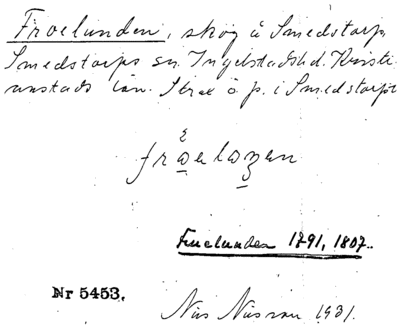 Froelunden, skog å Smedstorps
Smedstorps sn. Ingelstads hd. Kristi-
anstads län. Strax ö p. i Smedstorps
Fruelunden 1791, 1807.
Nr 5453.
Nils Nilsson 1931.